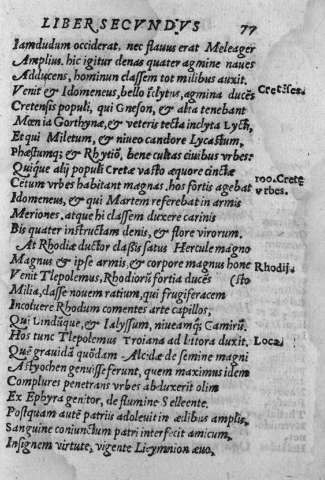 LIBER SECVNDVS 77
Iamdudum occiderat, nec flauus erat Meleager
Amplius. hic igitur denas quater agmine naues
Adducens, hominum classem tot milibus auxit.
Venit & Idomeneus, bello iclytus, agmina ducēs Cretēses.
Cretensis populi, qui Gnoson, & alta tenebant
Mœnia Gorthynæ, & veteris tecta inclyta Lycti,
Et qui Miletum, & niueo candore Lycastum,
Phæstumq; & Rhytiō, bene cultas ciuibus vrbes:
Quique alij populi Cretæ vasto æquore cinctæ
Cētum vrbes habitant magnas, hos fortis agebat 100. Cretę vrbes.
Idomeneus, & qui Martem referebat in armis
Meriones. atque hi classem duxere carinis
Bis quater instructam denis, & flore virorum.
At Rhodiæ ductor classis satus Hercule magno
Magnus & ipse armis, & corpore magnus hone Rhodij
Venit Tlepolemus, Rhodiorū fortia ducēs (sto
Milia, classe nouem ratium, qui frugiferacem
Incoluere Rhodum comentes arte capillos,
Qui Lindūque, & Ialyssum, niueamq; Camirū.
Hos tunc Tlepolemus Troiana ad littora duxit. Loca
Quē grauida quōdam Alcidæ de semine magni
Astyochen genuisse ferunt, quem maximus idem
Complures penetrans vrbes abduxerit olim
Ex Ephyra genitor, de flumine Selleente.
Postquam autē patrijs adoleuit in ædibus amplis,
Sanguine coniunctum patri interfecit amicum,
Insignem virtute, vigente Licymnion æuo,